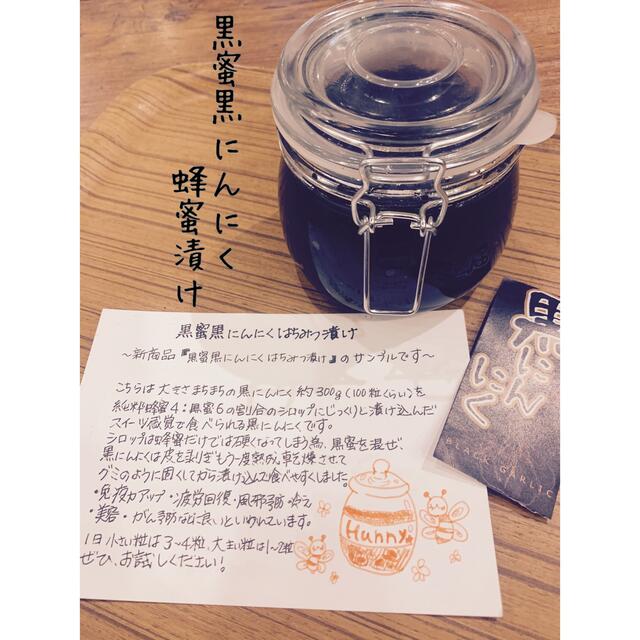 黒蜜黒にんにく
蜂蜜漬け
黒蜜黒にんにくはちみつ漬け
～新商品『黒蜜黒にんにくはちみつ漬け』のサンプルです～
こちらは大きさまちまちの黒にんにく約300g(100粒くらい)を
純粋蜂蜜4:黒蜜6の割合のシロップにじっくりと漬け込んだ
スイーツ感覚で食べられる黒にんにくです。
シロップは蜂蜜だけでは硬くなってしまう為、黒蜜を混ぜ、
黒にんにくは皮を剥きもう一度熟成、乾燥させて
グミのように固くしてから漬け込んで食べやすくしました。
・免疫力アップ・疲労回復・風邪予防・冷え
・美容・がん予防などに良いといわれています。
1日小さい粒は3~4粒、大きい粒は1~2粒
ぜひ、お試しください!
Hunny
黒にん
にく
BLACK GARLIC